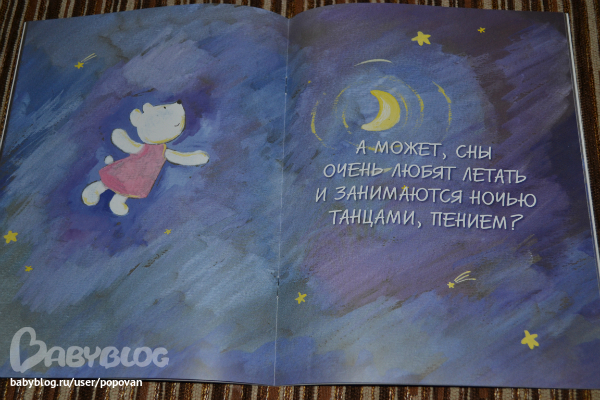 А МОЖЕТ, СНЫ
ОЧЕНЬ ЛЮБЯТ ЛЕТАТЬ
И ЗАНИМАЮТСЯ НОЧЬЮ
ТАНЦАМИ, ПЕНИЕМ?
BABYBLOG
babyblog.ru/user/popovan